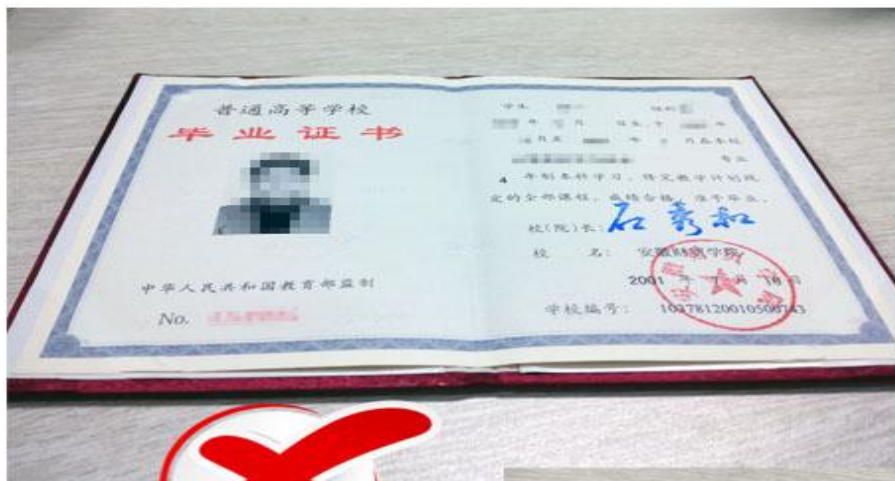 普通高等学校
毕业证书
中华人民共和国教育部监制
No.
学生 性别
年 月 日生,于 年
月至 年 月在本校
专业
4 年制本科学习,修完教学计划规
定的全部课程,成绩合格,准予毕业。
校(院)长: 石秀和
校 名: 安徽财贸学院
2001 年 7 月 10 日
学校编号: 10378120010500743